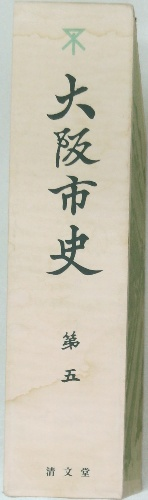 大阪市史
第五
清文堂